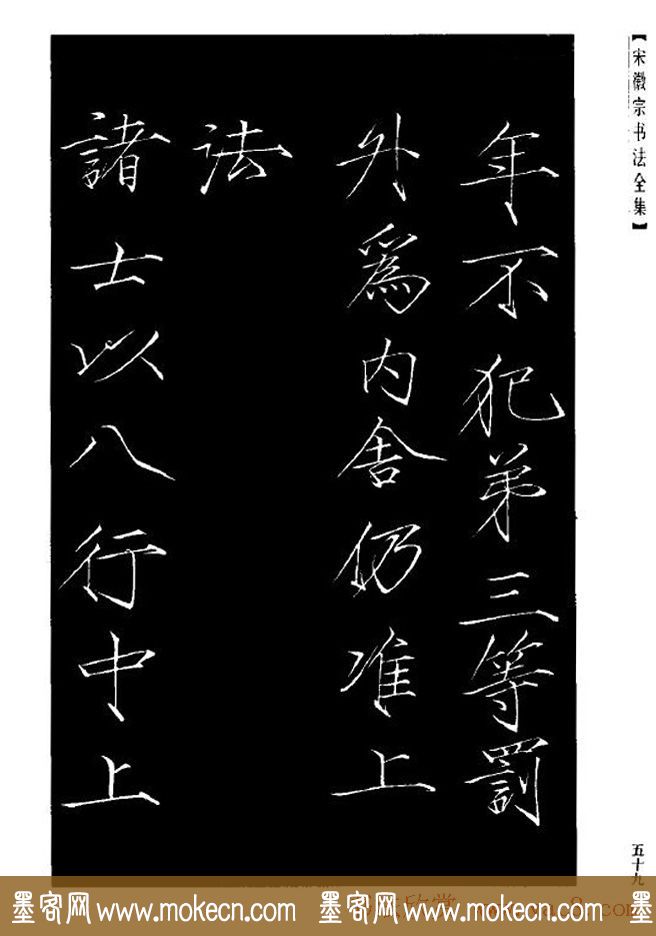 【宋徽宗书法全集】
年不犯弟三等罰
外為内舎仍准上
法
諸士以八行中上
五十九
墨客网 www.mokecn.com 墨客网 www.mokecn.com 墨客网